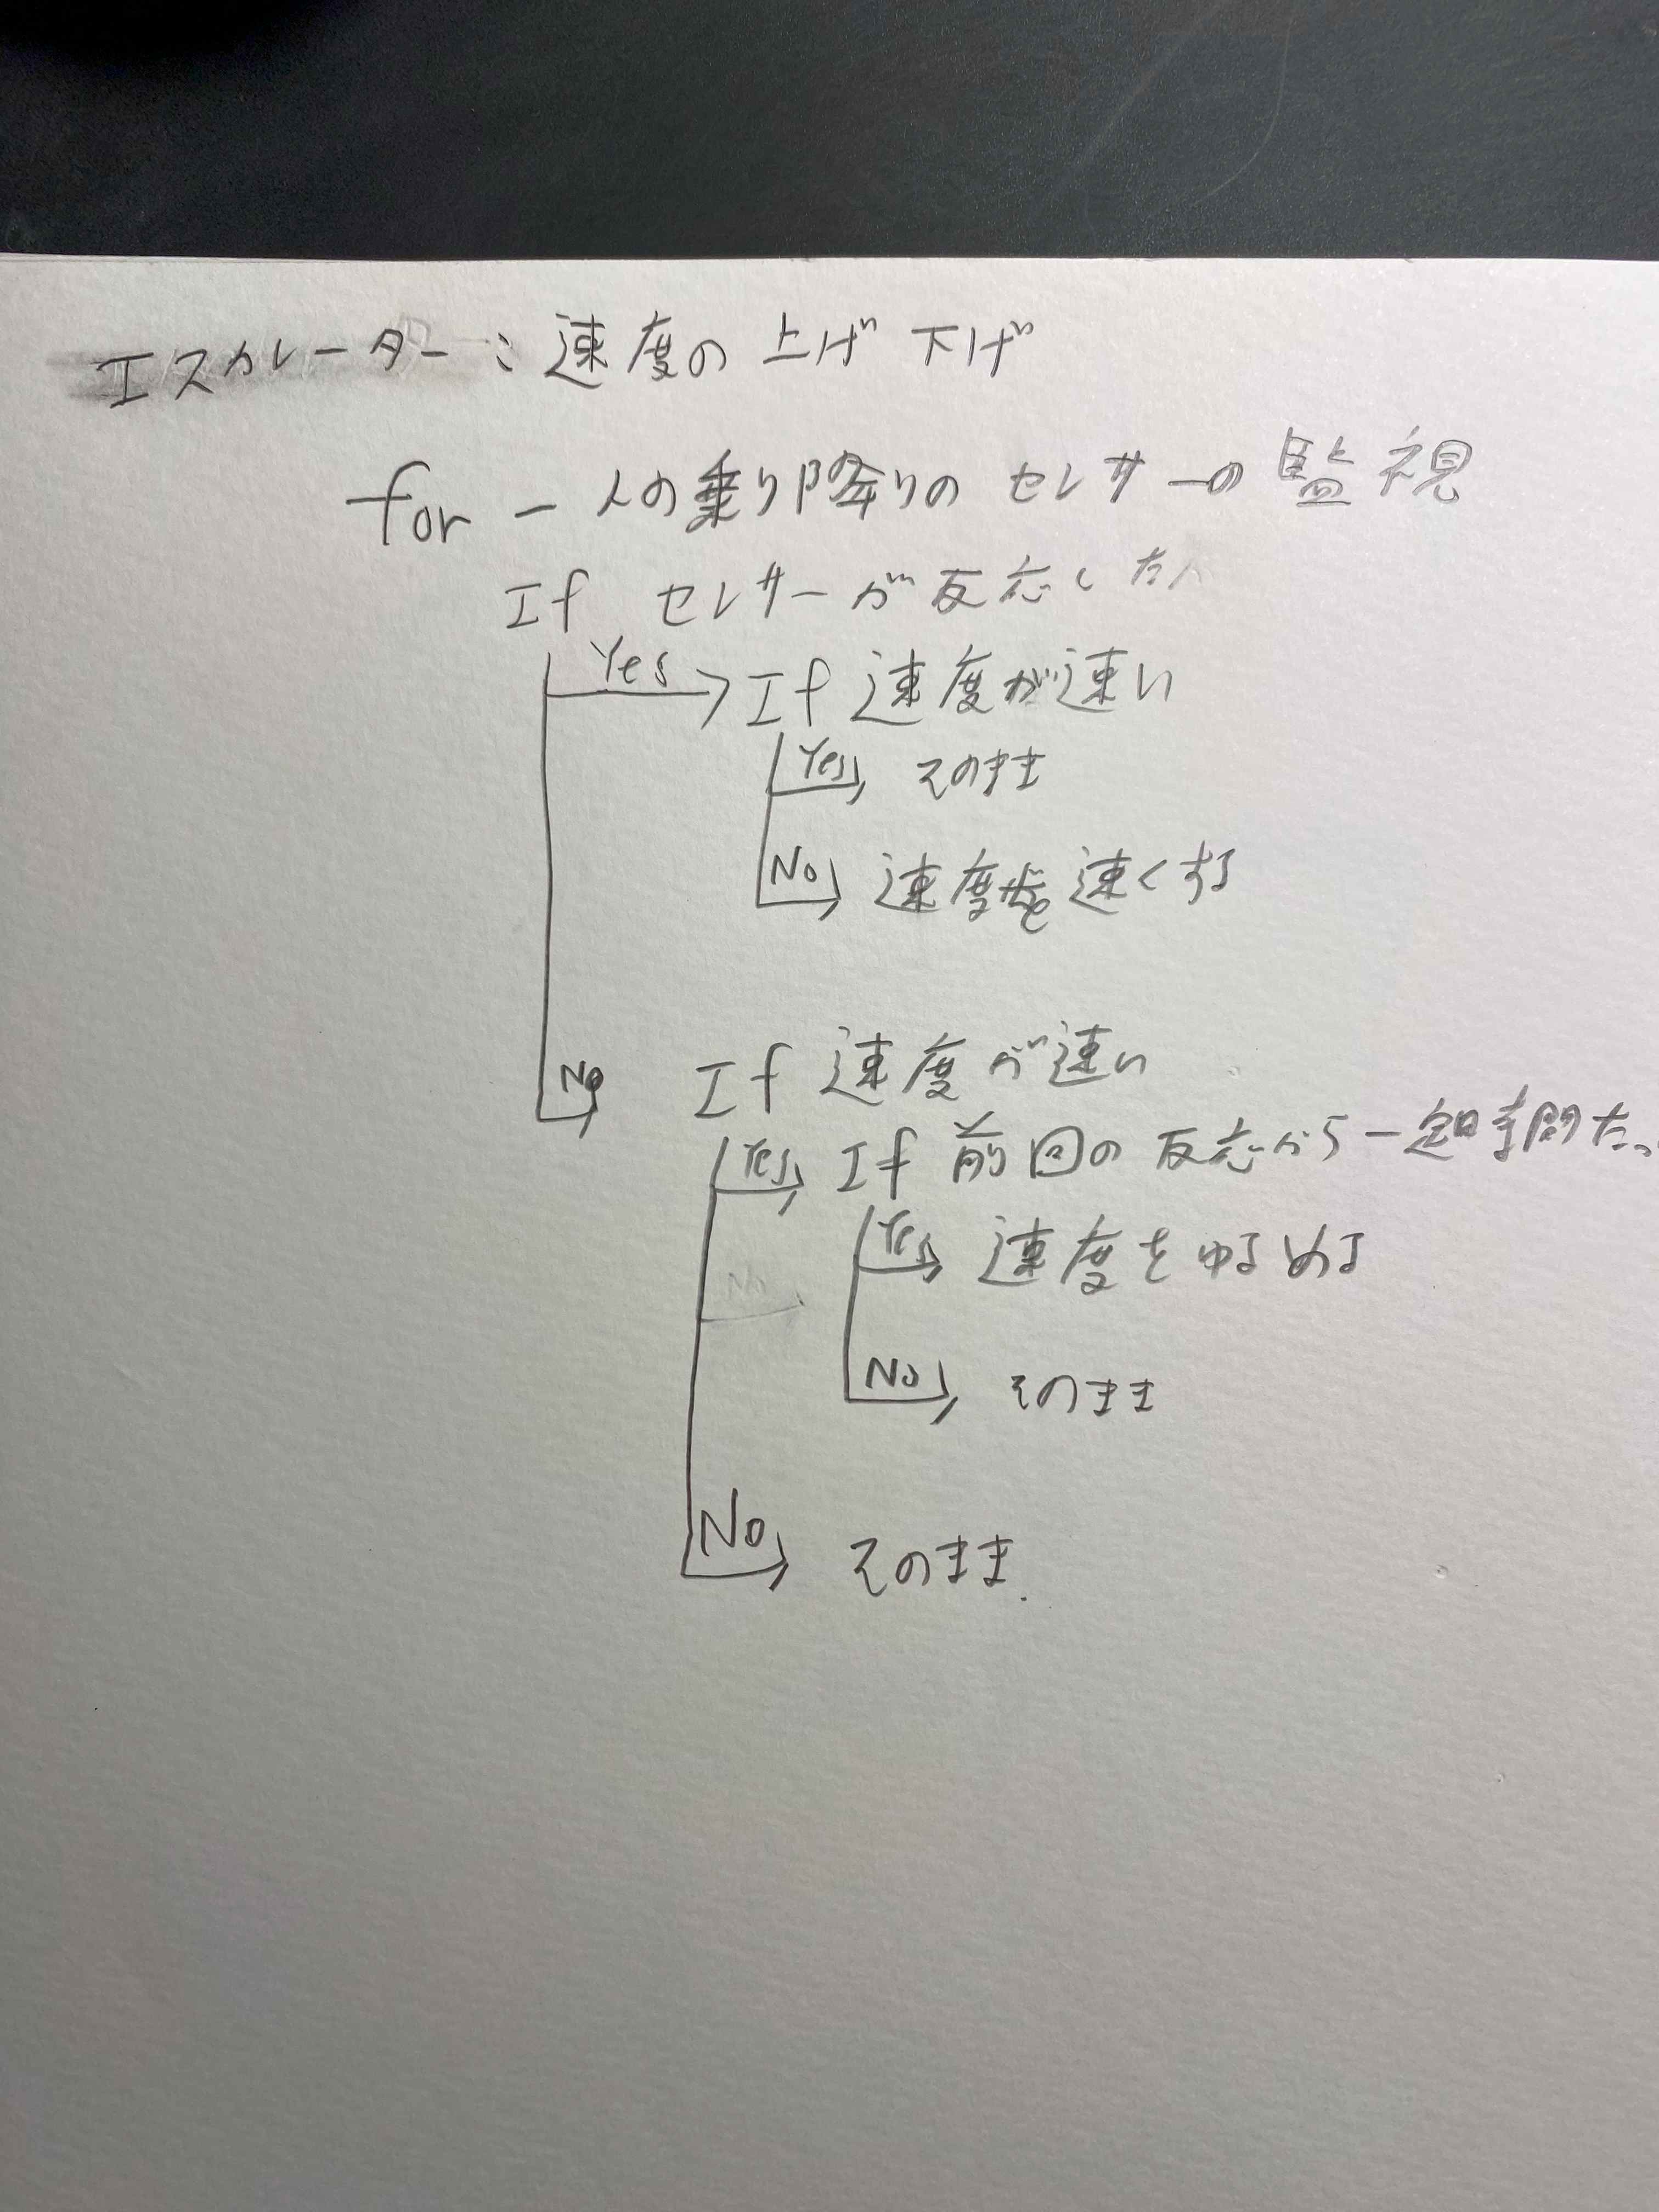 エスカレーター：速度の上げ下げ
for ー 人の乗り降りのセンサーの監視
If センサーが反応した
Yes If 速度が速い
Yes そのまま
No 速度を速くする
No If 速度が速い
Yes If 前回の反応から一定時間たっ
No
Yes 速度をゆるめる
No そのまま
No そのまま.